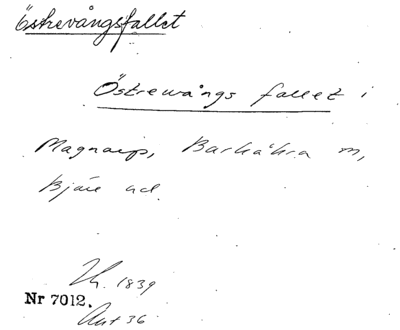 Östrevångsfallet
Östrewångs fallet i
Magnarp, Barkåkra m,
Bjäre hd.
Th. 1839
Nr 7012.
Akt 36